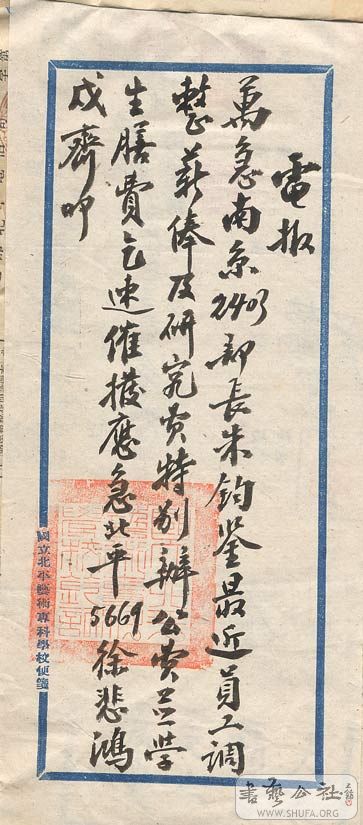 電报
萬急南京2403部長朱鈞鑒最近員工調
整薪俸及研究費特別辦公費並學
生膳費乞速催撥應急北平5669徐悲鴻
戍齊叩
國立北平藝術專科學校便箋
書藝公社
WWW.SHUFA.ORG